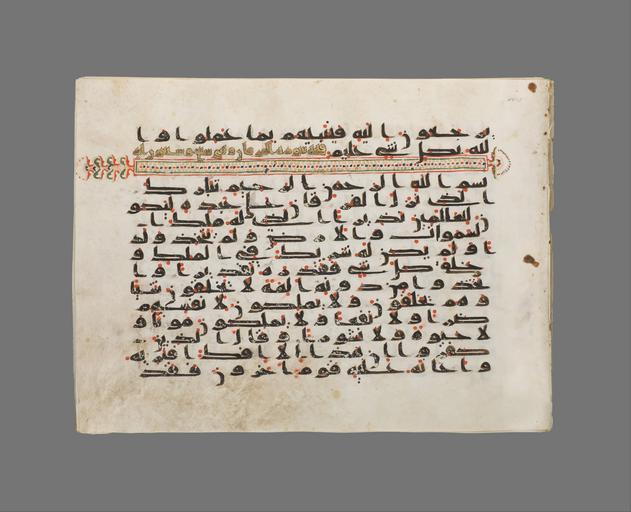 يرجعون اليه فينبئهم بما عملوا وا
لله بكل شي عليم سبع وسبعون
بسم الله الرحمن الرحيم تبرك
الذي نزل الفرقان على عبده ليكو
ن للعلمين نذيرا الذي له ملك ا
لسموات والارض ولم يتخذ ولد
ا ولم يكن له شريك في الملك و
خلق كل شي فقدره تقديرا وا
تخذوا من دونه الهة لا يخلقون شيا
وهم يخلقون ولا يملكون لانفسهم
ضرا ولا نفعا ولا يملكون موتا و
لا حيوة ولا نشورا وقال الذين
كفروا ان هذا الا افك افتريه
واعانه عليه قوم اخرون فقد